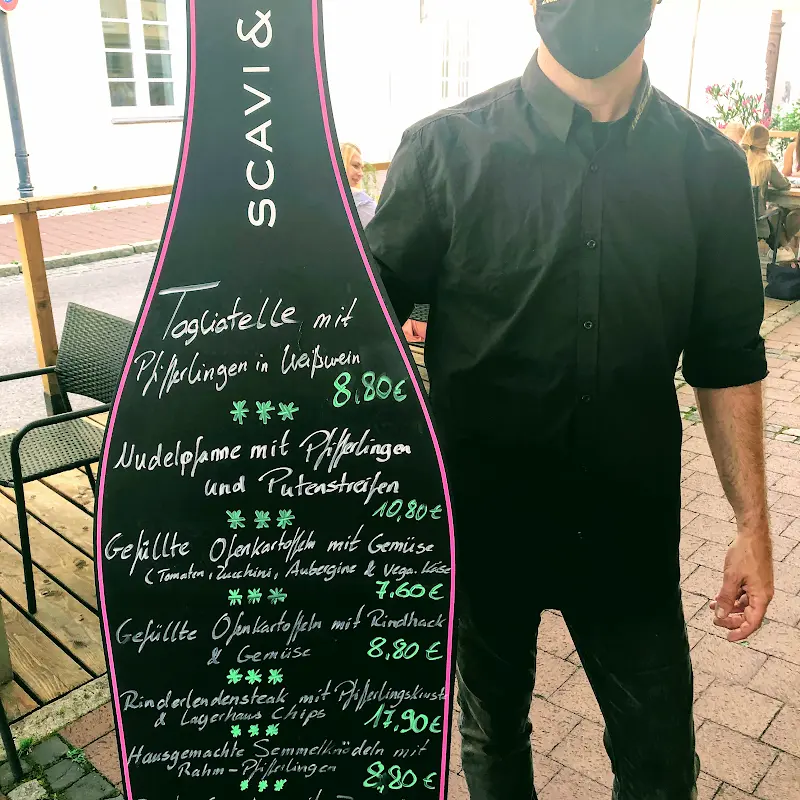 SCAVI &
Tagliatelle mit
Pfifferlingen in Weißwein
8,80€
Nudelpfanne mit Pfifferlingen
und Putenstreifen
10,80€
Gefüllte Ofenkartoffeln mit Gemüse
(Tomaten, Zucchini, Aubergine & Vega. Käse
7,60€
Gefüllte Ofenkartoffeln mit Rindhack
& Gemüse
8,80€
Rinderlendensteak mit Pfifferlingskruste
& Lagerhaus Chips
17,90€
Hausgemachte Semmelknödeln mit
Rahm-Pfifferlingen
8,80€